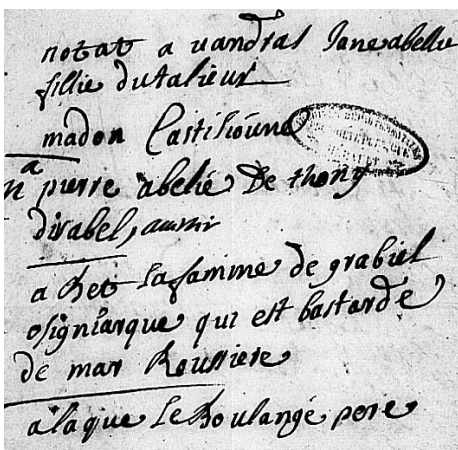 notat a vandras Jane abelle
fillie dutalieur
madon Castilioune
n a pierre abelié de thony
disabel,
a Bet la famme de grabiel
qui est bastarde
de mar Roussiere
a laque le Boulangé pere